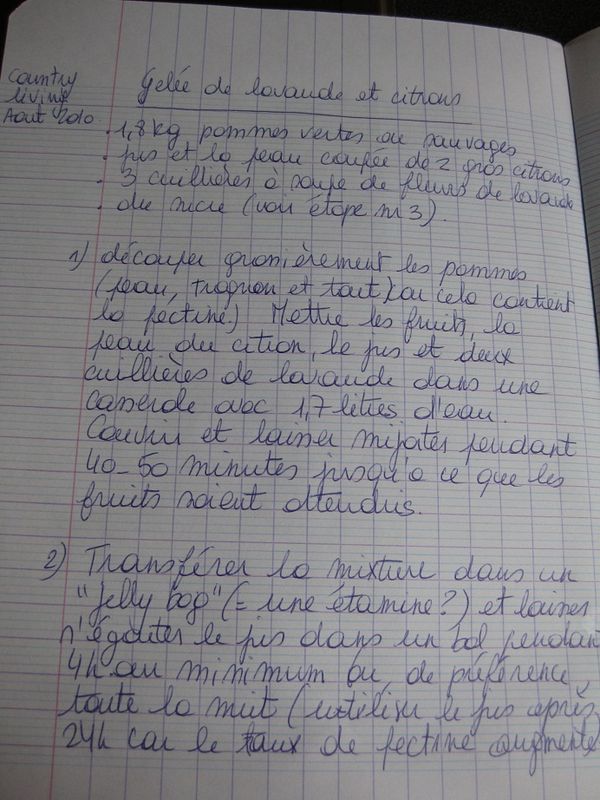 Country
living
Août 2010
Gelée de lavande et citrons
. 1,8 kg pommes vertes ou sauvages
. jus et la peau coupée de 2 gros citrons
. 3 cuillières à soupe de fleurs de lavande
. du sucre (voir étape n° 3).
1) découper grossièrement les pommes
(peau, trognon et tout) car cela contient
la pectine) Mettre les fruits, la
peau du citron, le jus et deux
cuillières de lavande dans une
casserole avec 1,7 litres d'eau.
Couvrir et laisser mijoter pendant
40-50 minutes jusqu'a ce que les
fruits soient attendris.
2) Transférer la mixture dans un
"jelly bag" (= une étamine?) et laisser
s'égouter le jus dans un bol pendant
4h au minimum ou, de préférence,
toute la nuit (utiliser le jus après
24h car le taux de pectine augmente